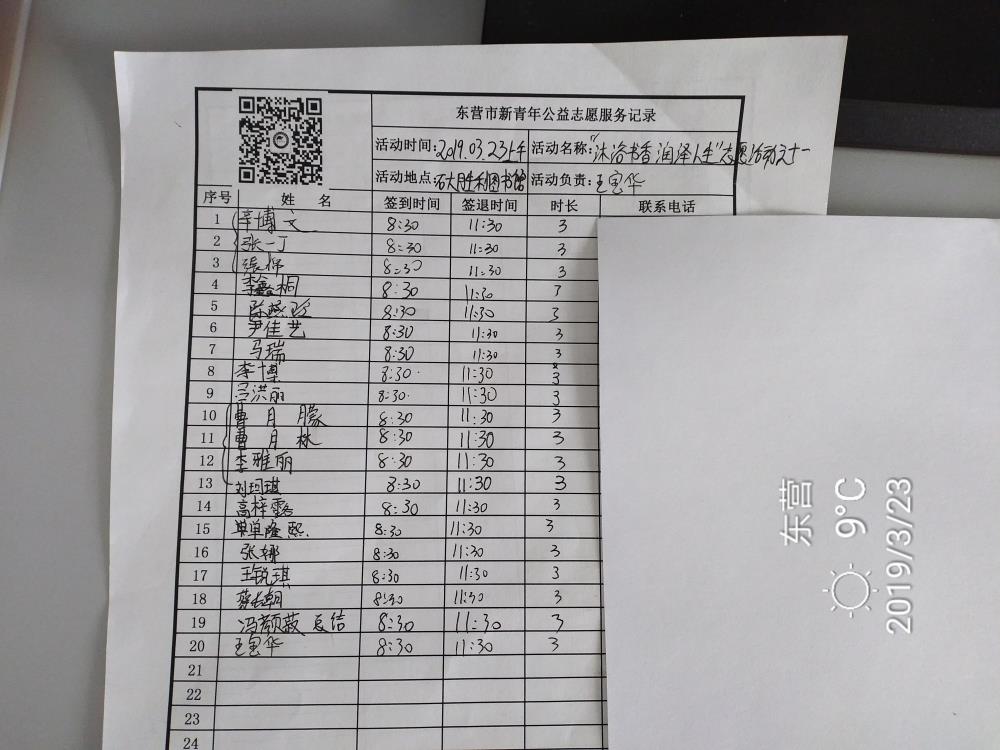 东营市新青年公益志愿服务记录
活动时间：2019.03.23上午 活动名称："沐浴书香 润泽人生"志愿活动之十一
活动地点：石大胜利图书馆 活动负责：王宝华
序号 姓 名 签到时间 签退时间 时长 联系电话
1 辛博文 8:30 11:30 3
2 张一丁 8:30 11:30 3
3 張 8:30 11:30 3
4 李鑫桐 8:30 11:30 3
5 陈燕 8:30 11:30 3
6 尹佳艺 8:30 11:30 3
7 马瑞 8:30 11:30 3
8 李博 8:30 11:30 3
9 吕洪丽 8:30 11:30 3
10 曹月朦 8:30 11:30 3
11 曹月林 8:30 11:30 3
12 李雅丽 8:30 11:30 3
13 刘珂琪 8:30 11:30 3
14 高梓露 8:30 11:30 3
15 单隆熙 8:30 11:30 3
16 张娜 8:30 11:30 3
17 王锐琪 8:30 11:30 3
18 朝 8:30 11:30 3
19 冯颜薇 总结 8:30 11:30 3
20 王宝华 8:30 11:30 3
21
22
23
24
东营
9°C
2019/3/23